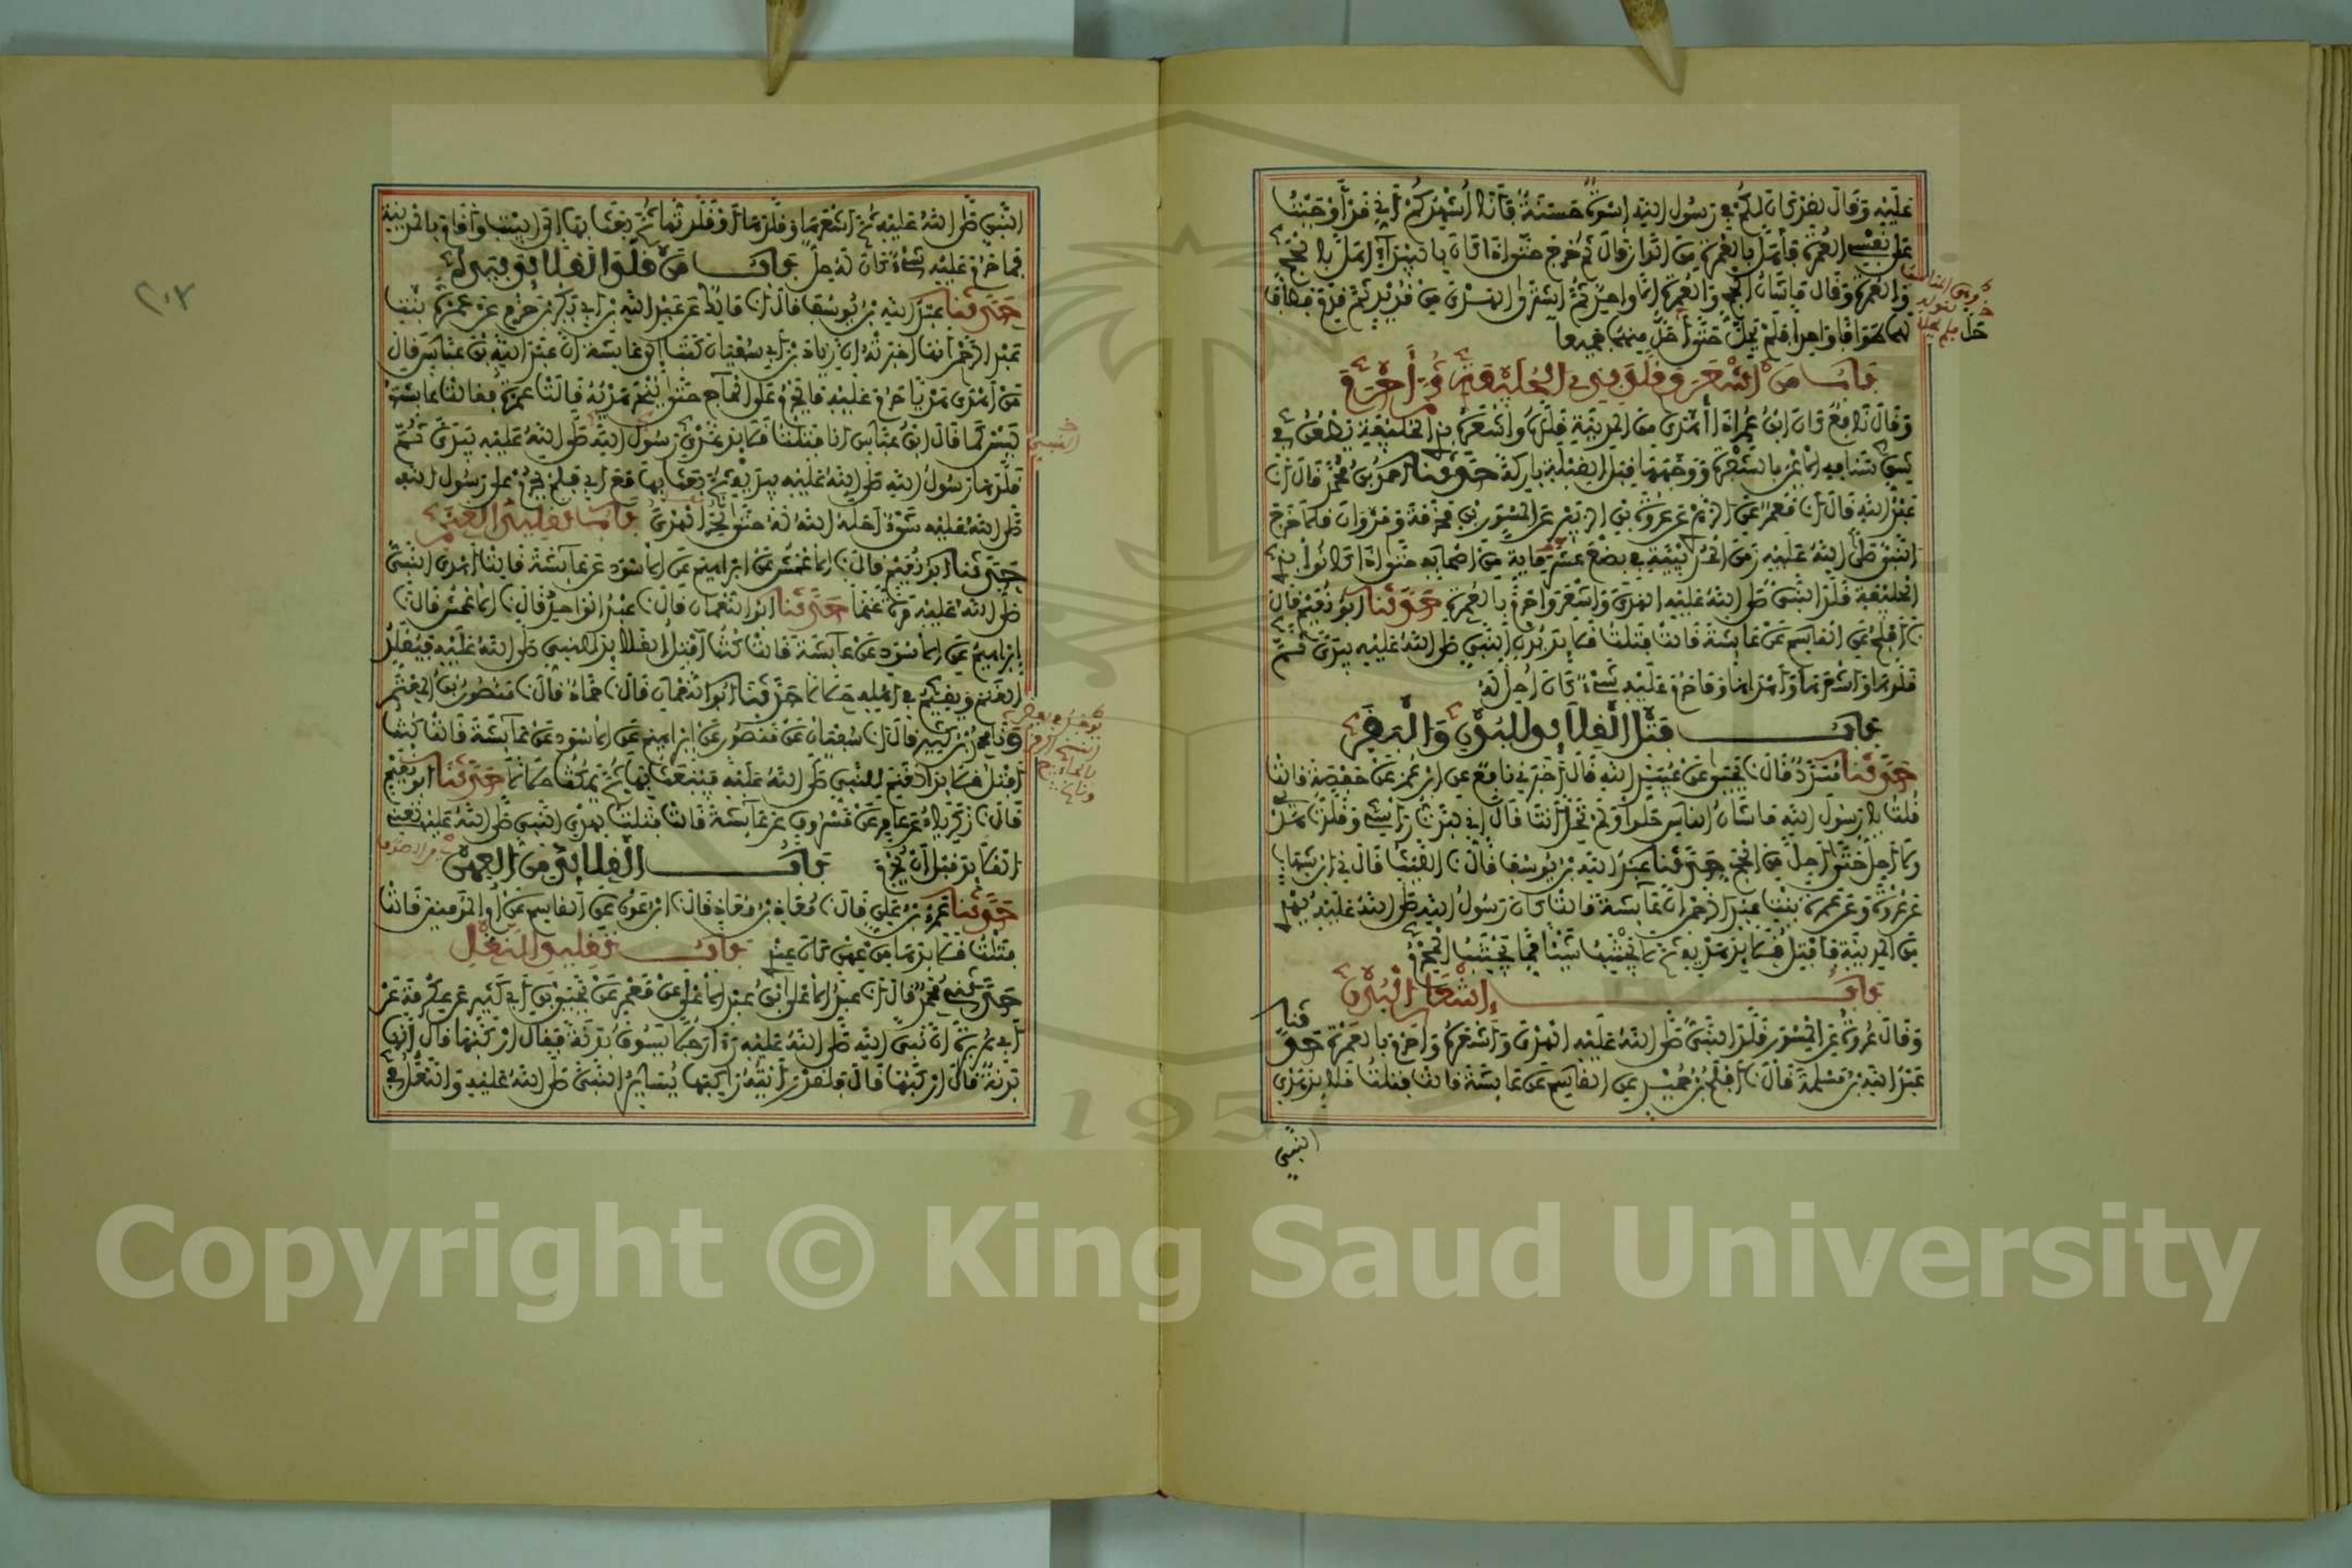 عَلَيْهِ وَقَالَ لَقَدْ كَانَ لَكُمْ فِي رَسُولِ اللهِ إِسْوَةٌ حَسَنَةٌ فَأَنَا أُشْهِدُكُمْ أَنِّي قَدْ أَوْجَبْتُ
عَلَى نَفْسِي الْعُمْرَةَ فَأَهَلَّ بِالْعُمْرَةِ مِنَ الدَّارِ قَالَ ثُمَّ خَرَجَ حَتَّى إِذَا كَانَ بِالْبَيْدَاءِ أَهَلَّ بِالْحَجِّ
وَالْعُمْرَةِ وَقَالَ مَا شَأْنُ الْحَجِّ وَالْعُمْرَةِ إِلَّا وَاحِدٌ ثُمَّ اشْتَرَى الْهَدْيَ مِنْ قُدَيْدٍ ثُمَّ قَدِمَ فَطَافَ
لَهُمَا طَوَافًا وَاحِدًا فَلَمْ يَحِلَّ حَتَّى أَحَلَّ مِنْهُمَا جَمِيعًا
حَلَّ
بَابُ مَنْ أَشْعَرَ وَقَلَّدَ بِذِي الْحُلَيْفَةِ ثُمَّ أَحْرَمَ
وَقَالَ نَافِعٌ كَانَ ابْنُ عُمَرَ إِذَا أَهْدَى مِنَ الْمَدِينَةِ قَلَّدَهُ وَأَشْعَرَهُ بِذِي الْحُلَيْفَةِ يَطْعُنُ فِي
شِقِّ سَنَامِهِ الْأَيْمَنِ بِالشَّفْرَةِ وَوَجْهُهَا قِبَلَ الْقِبْلَةِ بَارِكَةً حَدَّثَنَا أَحْمَدُ بْنُ مُحَمَّدٍ قَالَ أَنَا
عَبْدُ اللهِ قَالَ أَنَا مَعْمَرٌ عَنِ الزُّهْرِيِّ عَنْ عُرْوَةَ بْنِ الزُّبَيْرِ عَنِ الْمِسْوَرِ بْنِ مَخْرَمَةَ وَمَرْوَانَ قَالَا خَرَجَ
النَّبِيُّ صَلَّى اللهُ عَلَيْهِ زَمَنَ الْحُدَيْبِيَةِ فِي بِضْعَ عَشْرَةَ مِائَةٍ مِنْ أَصْحَابِهِ حَتَّى إِذَا كَانُوا بِذِي
الْحُلَيْفَةِ قَلَّدَ النَّبِيُّ صَلَّى اللهُ عَلَيْهِ الْهَدْيَ وَأَشْعَرَ وَأَحْرَمَ بِالْعُمْرَةِ حَدَّثَنَا أَبُو نُعَيْمٍ قَالَ
نَا أَفْلَحُ عَنِ الْقَاسِمِ عَنْ عَائِشَةَ قَالَتْ فَتَلْتُ قَلَائِدَ بُدْنِ النَّبِيِّ صَلَّى اللهُ عَلَيْهِ بِيَدَيَّ ثُمَّ
قَلَّدَهَا وَأَشْعَرَهَا وَأَهْدَاهَا وَمَا حَرُمَ عَلَيْهِ شَيْءٌ كَانَ أُحِلَّ لَهُ
بَابُ فَتْلِ الْقَلَائِدِ لِلْبُدْنِ وَالْبَقَرِ
حَدَّثَنَا مُسَدَّدٌ قَالَ نَا يَحْيَى عَنْ عُبَيْدِ اللهِ قَالَ أَخْبَرَنِي نَافِعٌ عَنِ ابْنِ عُمَرَ عَنْ حَفْصَةَ قَالَتْ
قُلْتُ يَا رَسُولَ اللهِ مَا شَأْنُ النَّاسِ حَلُّوا وَلَمْ تَحِلَّ أَنْتَ قَالَ إِنِّي لَبَّدْتُ رَأْسِي وَقَلَّدْتُ هَدْيِي
وَلَا أَحِلُّ حَتَّى أَحِلَّ مِنَ الْحَجِّ حَدَّثَنَا عَبْدُ اللهِ بْنُ يُوسُفَ قَالَ نَا اللَّيْثُ قَالَ نَا ابْنُ شِهَابٍ
عَنْ عُرْوَةَ وَعَنْ عَمْرَةَ بِنْتِ عَبْدِ الرَّحْمَنِ أَنَّ عَائِشَةَ قَالَتْ كَانَ رَسُولُ اللهِ صَلَّى اللهُ عَلَيْهِ يُهْدِي
مِنَ الْمَدِينَةِ فَأَفْتِلُ قَلَائِدَ هَدْيِهِ ثُمَّ لَا يَجْتَنِبُ شَيْئًا مِمَّا يَجْتَنِبُ الْمُحْرِمُ
بَابُ إِشْعَارِ الْبُدْنِ
وَقَالَ عُرْوَةُ عَنِ الْمِسْوَرِ قَلَّدَ النَّبِيُّ صَلَّى اللهُ عَلَيْهِ الْهَدْيَ وَأَشْعَرَهُ وَأَحْرَمَ بِالْعُمْرَةِ حَدَّثَنَا
عَبْدُ اللهِ بْنُ مَسْلَمَةَ قَالَ نَا أَفْلَحُ بْنُ حُمَيْدٍ عَنِ الْقَاسِمِ عَنْ عَائِشَةَ قَالَتْ فَتَلْتُ قَلَائِدَ هَدْيِ
النَّبِيِّ
٢٠٣
النَّبِيِّ صَلَّى اللهُ عَلَيْهِ ثُمَّ أَشْعَرَهَا وَقَلَّدَهَا أَوْ قَلَّدْتُهَا ثُمَّ بَعَثَ بِهَا إِلَى الْبَيْتِ وَأَقَامَ بِالْمَدِينَةِ
فَمَا حَرُمَ عَلَيْهِ شَيْءٌ كَانَ لَهُ حِلٌّ بَابُ مَنْ قَلَّدَ الْقَلَائِدَ بِيَدِهِ
حَدَّثَنَا عَبْدُ اللهِ بْنُ يُوسُفَ قَالَ أَنَا مَالِكٌ عَنْ عَبْدِ اللهِ بْنِ أَبِي بَكْرِ بْنِ حَزْمٍ عَنْ عَمْرَةَ بِنْتِ
عَبْدِ الرَّحْمَنِ أَنَّهَا أَخْبَرَتْهُ أَنَّ زِيَادَ بْنَ أَبِي سُفْيَانَ كَتَبَ إِلَى عَائِشَةَ أَنَّ عَبْدَ اللهِ بْنَ عَبَّاسٍ قَالَ
مَنْ أَهْدَى هَدْيًا حَرُمَ عَلَيْهِ مَا يَحْرُمُ عَلَى الْحَاجِّ حَتَّى يُنْحَرَ هَدْيُهُ قَالَتْ عَمْرَةُ فَقَالَتْ عَائِشَةُ
لَيْسَ كَمَا قَالَ ابْنُ عَبَّاسٍ أَنَا فَتَلْتُ قَلَائِدَ هَدْيِ رَسُولِ اللهِ صَلَّى اللهُ عَلَيْهِ بِيَدَيَّ ثُمَّ
النبي
قَلَّدَهَا رَسُولُ اللهِ صَلَّى اللهُ عَلَيْهِ بِيَدَيْهِ ثُمَّ بَعَثَ بِهَا مَعَ أَبِي فَلَمْ يَحْرُمْ عَلَى رَسُولِ اللهِ
صَلَّى اللهُ عَلَيْهِ شَيْءٌ أَحَلَّهُ اللهُ لَهُ حَتَّى نُحِرَ الْهَدْيُ بَابُ تَقْلِيدِ الْغَنَمِ
حَدَّثَنَا أَبُو نُعَيْمٍ قَالَ نَا الْأَعْمَشُ عَنْ إِبْرَاهِيمَ عَنِ الْأَسْوَدِ عَنْ عَائِشَةَ قَالَتْ أَهْدَى النَّبِيُّ
صَلَّى اللهُ عَلَيْهِ مَرَّةً غَنَمًا حَدَّثَنَا أَبُو النُّعْمَانِ قَالَ نَا عَبْدُ الْوَاحِدِ قَالَ نَا الْأَعْمَشُ قَالَ نَا
إِبْرَاهِيمُ عَنِ الْأَسْوَدِ عَنْ عَائِشَةَ قَالَتْ كُنْتُ أَفْتِلُ الْقَلَائِدَ لِلنَّبِيِّ صَلَّى اللهُ عَلَيْهِ فَيُقَلِّدُ
الْغَنَمَ وَيُقِيمُ فِي أَهْلِهِ حَلَالًا حَدَّثَنَا أَبُو النُّعْمَانِ قَالَ نَا حَمَّادٌ قَالَ نَا مَنْصُورُ بْنُ الْمُعْتَمِرِ
وَنَا مُحَمَّدُ بْنُ كَثِيرٍ قَالَ أَنَا سُفْيَانُ عَنْ مَنْصُورٍ عَنْ إِبْرَاهِيمَ عَنِ الْأَسْوَدِ عَنْ عَائِشَةَ قَالَتْ كُنْتُ
أَفْتِلُ قَلَائِدَ الْغَنَمِ لِلنَّبِيِّ صَلَّى اللهُ عَلَيْهِ فَيَبْعَثُ بِهَا ثُمَّ يَمْكُثُ حَلَالًا حَدَّثَنَا أَبُو نُعَيْمٍ
قَالَ نَا زَكَرِيَّاءُ عَنْ عَامِرٍ عَنْ مَسْرُوقٍ عَنْ عَائِشَةَ قَالَتْ فَتَلْتُ لِهَدْيِ النَّبِيِّ صَلَّى اللهُ عَلَيْهِ تَعْنِي
الْقَلَائِدَ قَبْلَ أَنْ يُحْرِمَ بَابُ الْقَلَائِدِ مِنَ الْعِهْنِ
حَدَّثَنَا عَمْرُو بْنُ عَلِيٍّ قَالَ نَا مُعَاذُ بْنُ مُعَاذٍ قَالَ نَا ابْنُ عَوْنٍ عَنِ الْقَاسِمِ عَنْ أُمِّ الْمُؤْمِنِينَ قَالَتْ
فَتَلْتُ قَلَائِدَهَا مِنْ عِهْنٍ كَانَ عِنْدِي بَابُ تَقْلِيدِ النَّعْلِ
حَدَّثَنِي مُحَمَّدٌ قَالَ أَنَا عَبْدُ الْأَعْلَى ابْنُ عَبْدِ الْأَعْلَى عَنْ مَعْمَرٍ عَنْ يَحْيَى بْنِ أَبِي كَثِيرٍ عَنْ عِكْرِمَةَ عَنْ
أَبِي هُرَيْرَةَ أَنَّ نَبِيَّ اللهِ صَلَّى اللهُ عَلَيْهِ رَأَى رَجُلًا يَسُوقُ بَدَنَةً فَقَالَ ارْكَبْهَا قَالَ إِنَّهَا
بَدَنَةٌ قَالَ ارْكَبْهَا قَالَ فَلَقَدْ رَأَيْتُهُ رَاكِبَهَا يُسَايِرُ النَّبِيَّ صَلَّى اللهُ عَلَيْهِ وَالنَّعْلُ فِي
1957
Copyright © King Saud University